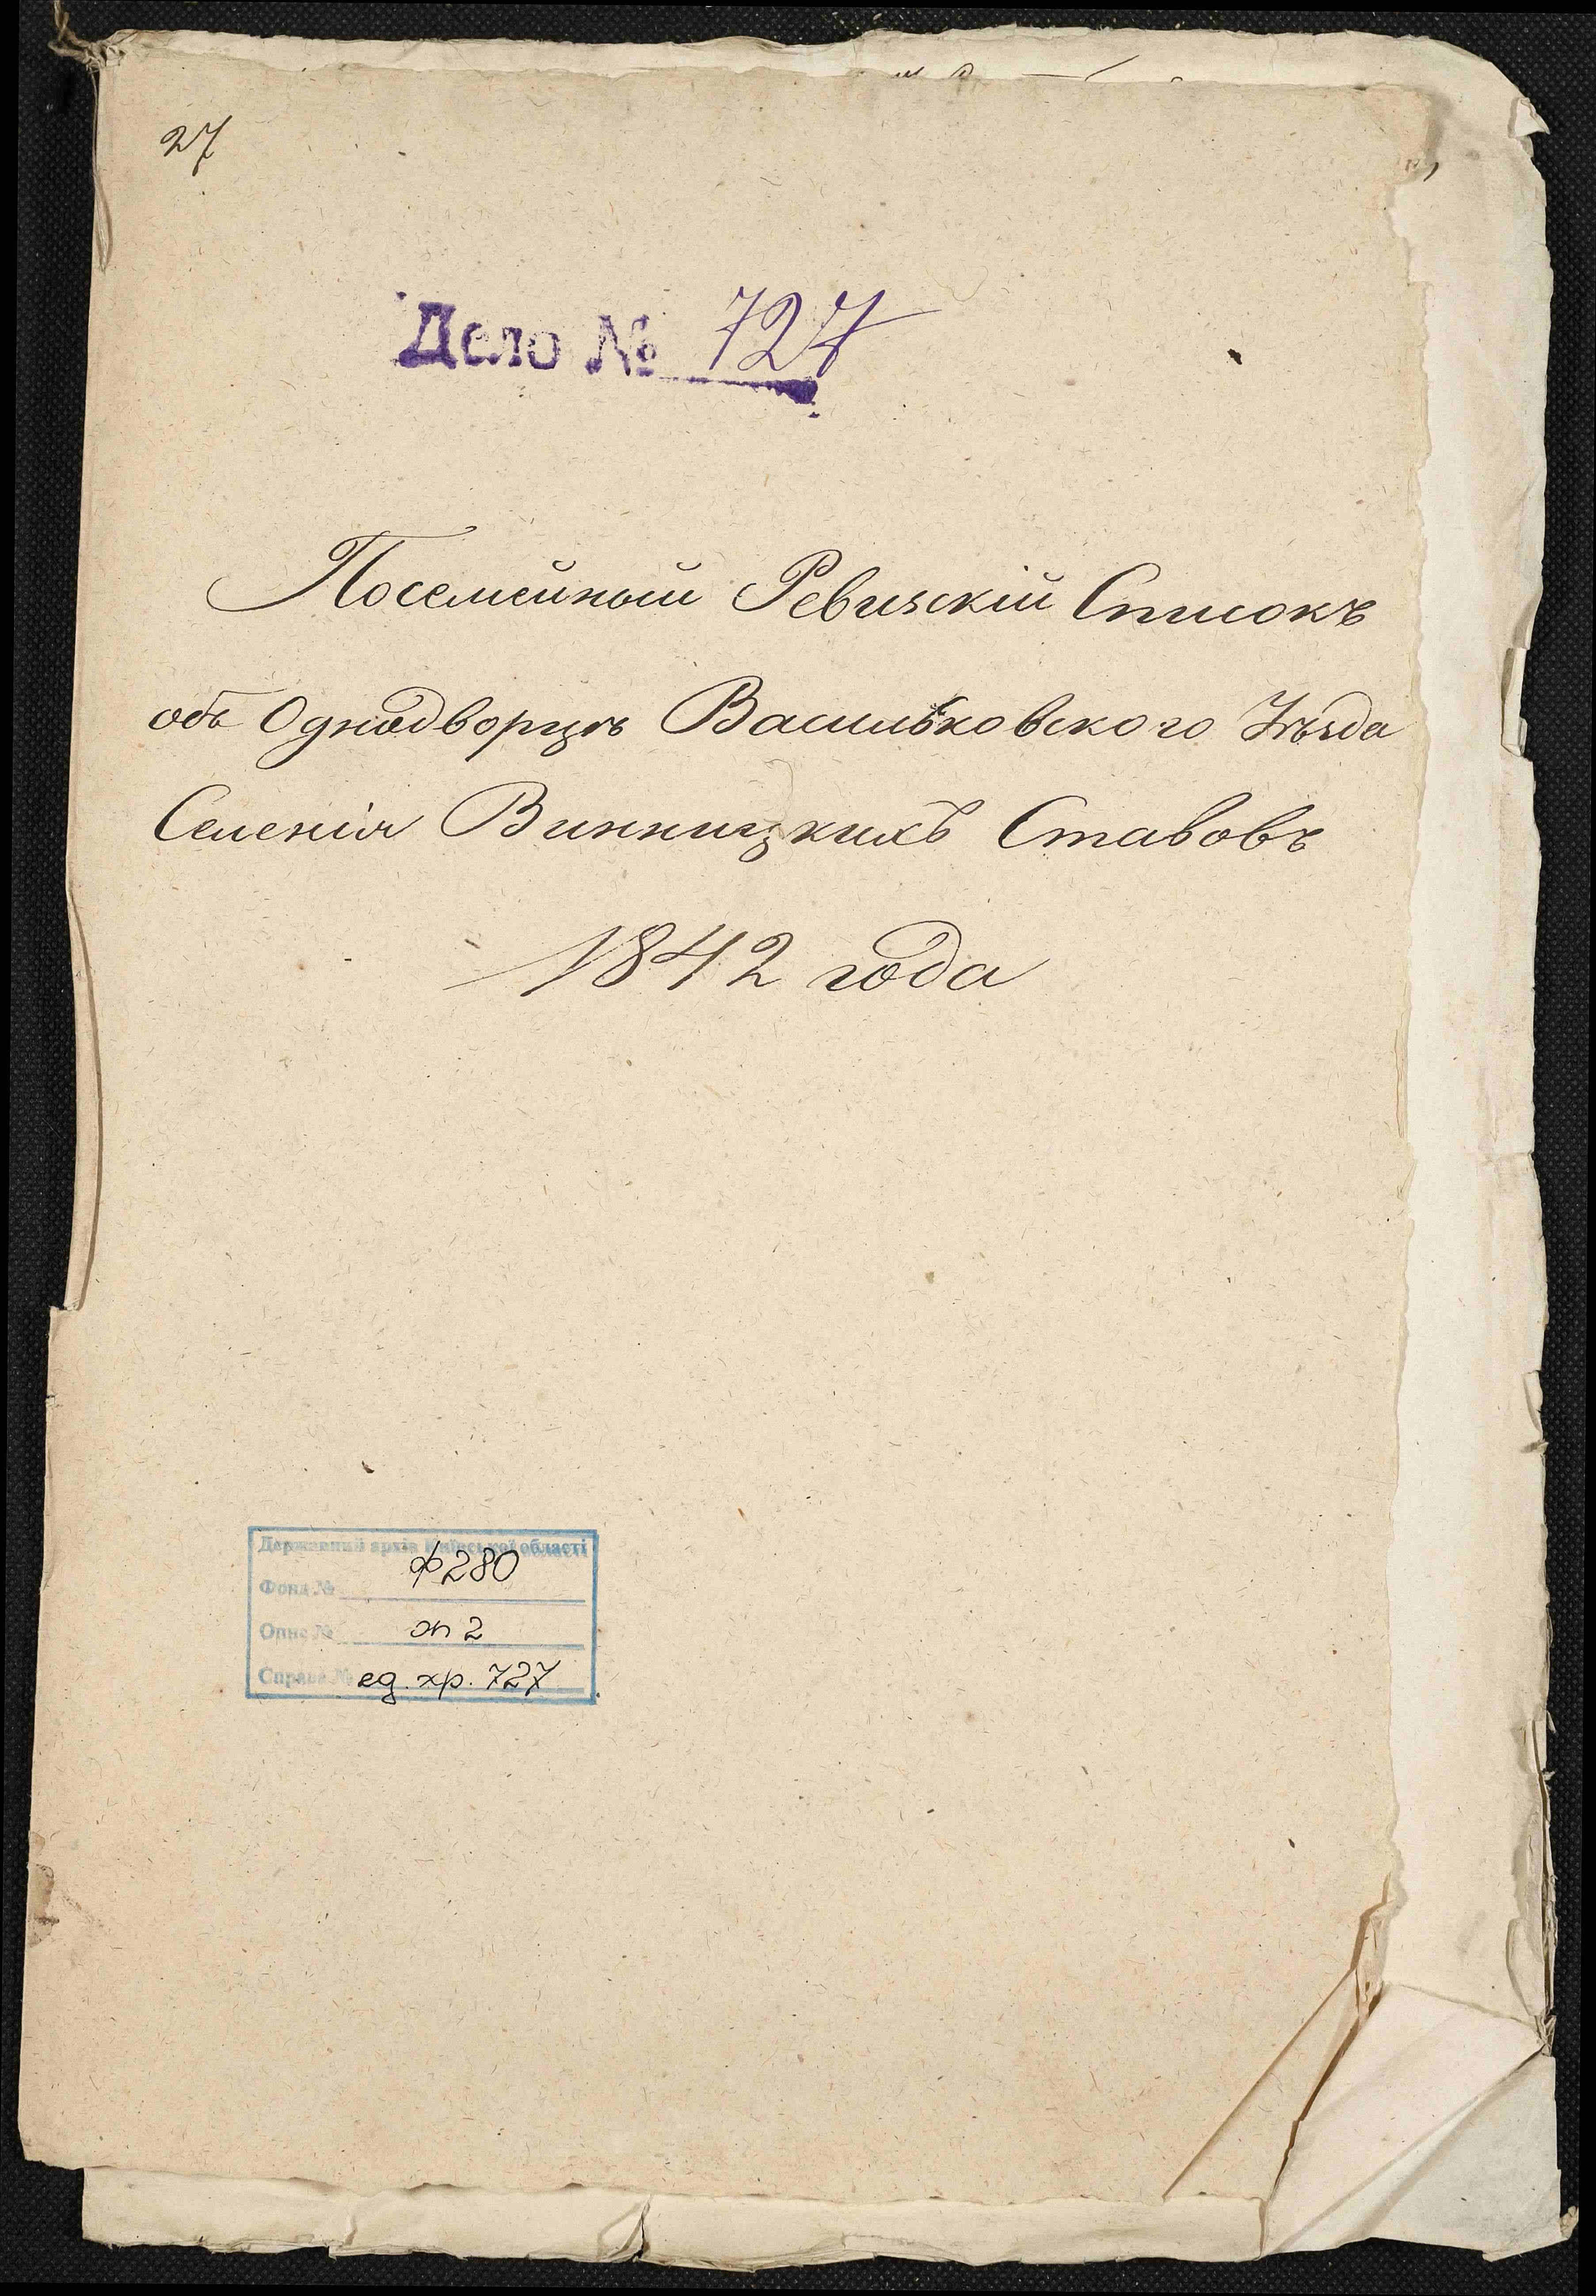 27
Дело № 727
Посемейный Ревизскій Списокъ
объ Однодворцѣ Васильковского Уѣзда
Селенія Винницкихъ Ставовъ
1842 года
Державний архів Київської області
Фонд № ф 280
Опис № оп 2
Справа № ед. хр. 727